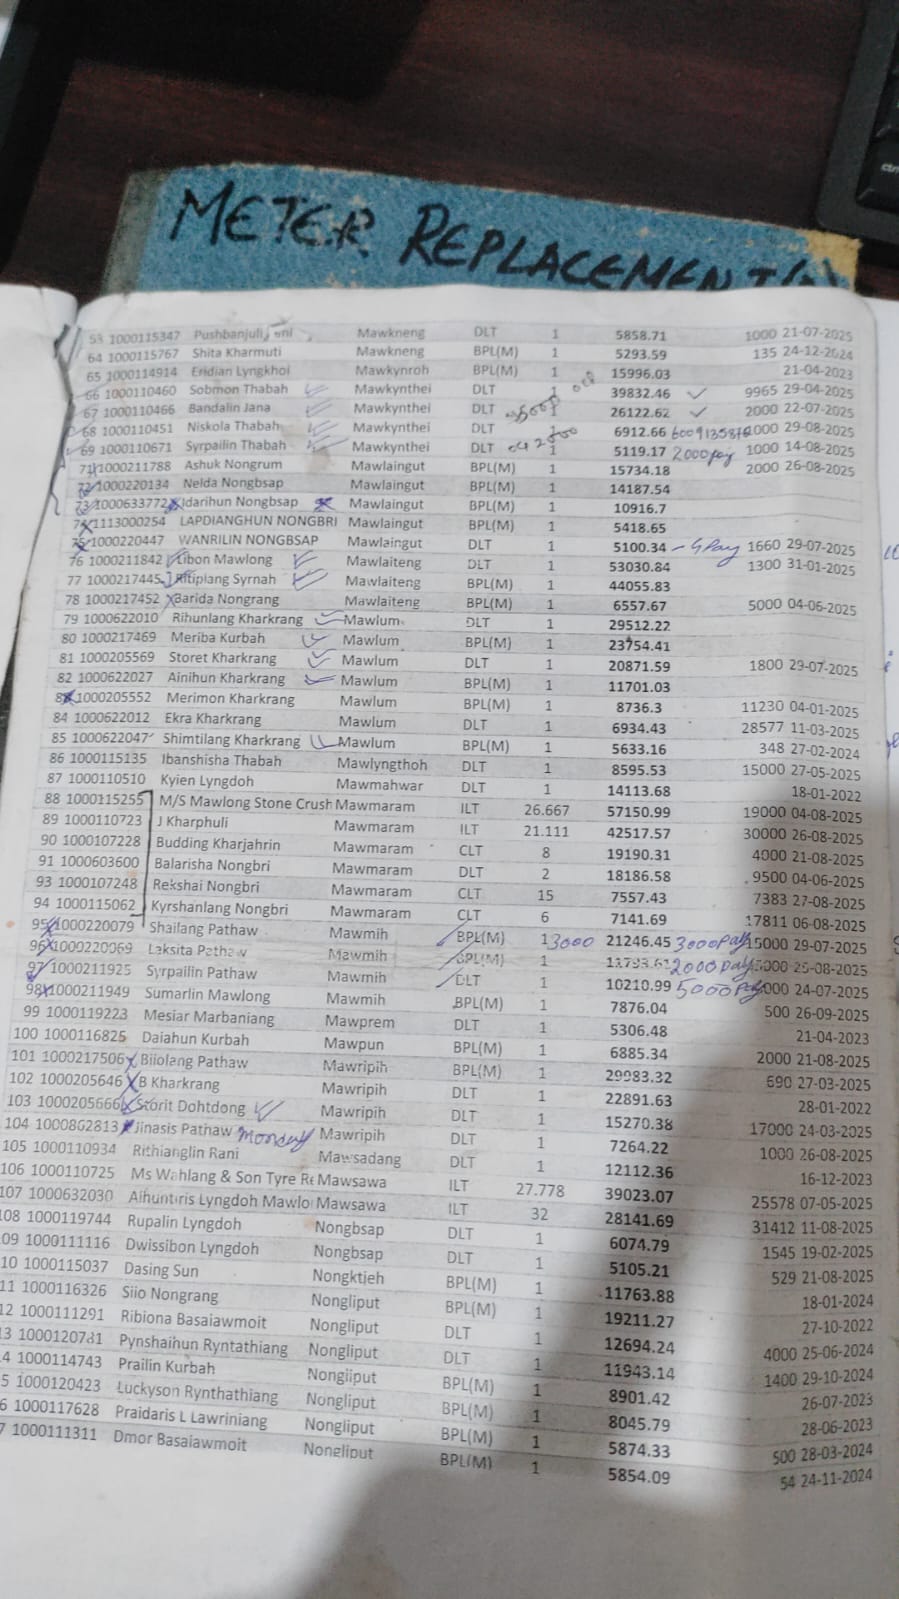 METER REPLACEMENT
63 1000115347 Mawkneng DLT 1 5858.71 1000 21-07-2025
64 1000115767 Shita Kharmuti Mawkneng BPL(M) 1 5293.59 135 24-12-2024
65 1000114914 Eridian Lyngkhoi Mawkynroh BPL(M) 1 15996.03 21-04-2023
66 1000110460 Sobmon Thabah Mawkynthei DLT 1 39832.46 9965 29-04-2025
67 1000110466 Bandalin Jana Mawkynthei DLT 26122.62 2000 22-07-2025
68 1000110451 Niskola Thabah Mawkynthei DLT 1 6912.66 29-08-2025
69 1000110671 Syrpailin Thabah Mawkynthei DLT 1 5119.17 2000 pay 1000 14-08-2025
71 1000211788 Ashuk Nongrum Mawlaingut BPL(M) 1 15734.18 2000 26-08-2025
72 1000220134 Nelda Nongbsap Mawlaingut BPL(M) 1 14187.54
73 1000633772 Idarihun Nongbsap Mawlaingut BPL(M) 1 10916.7
74 1113000254 LAPDIANGHUN NONGBRI Mawlaingut BPL(M) 1 5418.65
75 1000220447 WANRILIN NONGBSAP Mawlaingut DLT 1 5100.34 GPay 1660 29-07-2025
76 1000211842 Libon Mawlong Mawlaiteng DLT 1 53030.84 1300 31-01-2025
77 1000217445 Ritiplang Syrnah Mawlaiteng BPL(M) 1 44055.83
78 1000217452 Barida Nongrang Mawlaiteng BPL(M) 1 6557.67 5000 04-06-2025
79 1000622010 Rihunlang Kharkrang Mawlum DLT 1 29512.22
80 1000217469 Meriba Kurbah Mawlum BPL(M) 1 23754.41
81 1000205569 Storet Kharkrang Mawlum DLT 1 20871.59 1800 29-07-2025
82 1000622027 Ainihun Kharkrang Mawlum BPL(M) 1 11701.03
83 1000205552 Merimon Kharkrang Mawlum BPL(M) 1 8736.3 11230 04-01-2025
84 1000622012 Ekra Kharkrang Mawlum DLT 1 6934.43 28577 11-03-2025
85 1000622047 Shimtilang Kharkrang Mawlum BPL(M) 1 5633.16 348 27-02-2024
86 1000115135 Ibanshisha Thabah Mawlyngthoh DLT 1 8595.53 15000 27-05-2025
87 1000110510 Kyien Lyngdoh Mawmahwar DLT 1 14113.68 18-01-2022
88 1000115255 M/S Mawlong Stone Crush Mawmaram ILT 26.667 57150.99 19000 04-08-2025
89 1000110723 J Kharphuli Mawmaram ILT 21.111 42517.57 30000 26-08-2025
90 1000107228 Budding Kharjahrin Mawmaram CLT 8 19190.31 4000 21-08-2025
91 1000603600 Balarisha Nongbri Mawmaram DLT 2 18186.58 9500 04-06-2025
93 1000107248 Rekshai Nongbri Mawmaram CLT 15 7557.43 7383 27-08-2025
94 1000115062 Kyrshanlang Nongbri Mawmaram CLT 6 7141.69 17811 06-08-2025
95 1000220079 Shailang Pathaw Mawmih BPL(M) 1 3000 21246.45 3000 pay 15000 29-07-2025
96 1000220069 Laksita Pathaw Mawmih BPL(M) 1 2000 pay 25-08-2025
97 1000211925 Syrpailin Pathaw Mawmih DLT 1 10210.99 5000 pay 24-07-2025
98 1000211949 Sumarlin Mawlong Mawmih BPL(M) 1 7876.04 500 26-09-2025
99 1000119223 Mesiar Marbaniang Mawprem DLT 1 5306.48 21-04-2023
100 1000116825 Daiahun Kurbah Mawpun BPL(M) 1 6885.34 2000 21-08-2025
101 1000217506 Biiolang Pathaw Mawripih BPL(M) 1 29983.32 690 27-03-2025
102 1000205646 B Kharkrang Mawripih DLT 1 22891.63 28-01-2022
103 1000205666 Storit Dohtdong Mawripih DLT 1 15270.38 17000 24-03-2025
104 1000862813 Jinasis Pathaw Monday Mawripih DLT 1 7264.22 1000 26-08-2025
105 1000110934 Rithianglin Rani Mawsadang DLT 1 12112.36 16-12-2023
106 1000110725 Ms Wahlang & Son Tyre Re Mawsawa ILT 27.778 39023.07 25578 07-05-2025
107 1000632030 Aihuntiris Lyngdoh Mawlo Mawsawa ILT 32 28141.69 31412 11-08-2025
108 1000119744 Rupalin Lyngdoh Nongbsap DLT 1 6074.79 1545 19-02-2025
09 1000111116 Dwissibon Lyngdoh Nongbsap DLT 1 5105.21 529 21-08-2025
10 1000115037 Dasing Sun Nongktieh BPL(M) 1 11763.88 18-01-2024
11 1000116326 Siio Nongrang Nongliput BPL(M) 1 19211.27 27-10-2022
12 1000111291 Ribiona Basaiawmoit Nongliput DLT 1 12694.24 4000 25-06-2024
13 1000120781 Pynshaihun Ryntathiang Nongliput DLT 1 11943.14 1400 29-10-2024
4 1000114743 Prailin Kurbah Nongliput BPL(M) 1 8901.42 26-07-2023
5 1000120423 Luckyson Rynthathiang Nongliput BPL(M) 1 8045.79 28-06-2023
6 1000117628 Praidaris L Lawriniang Nongliput BPL(M) 1 5874.33 500 28-03-2024
7 1000111311 Dmor Basaiawmoit Nongliput BPL(M) 1 5854.09 54 24-11-2024